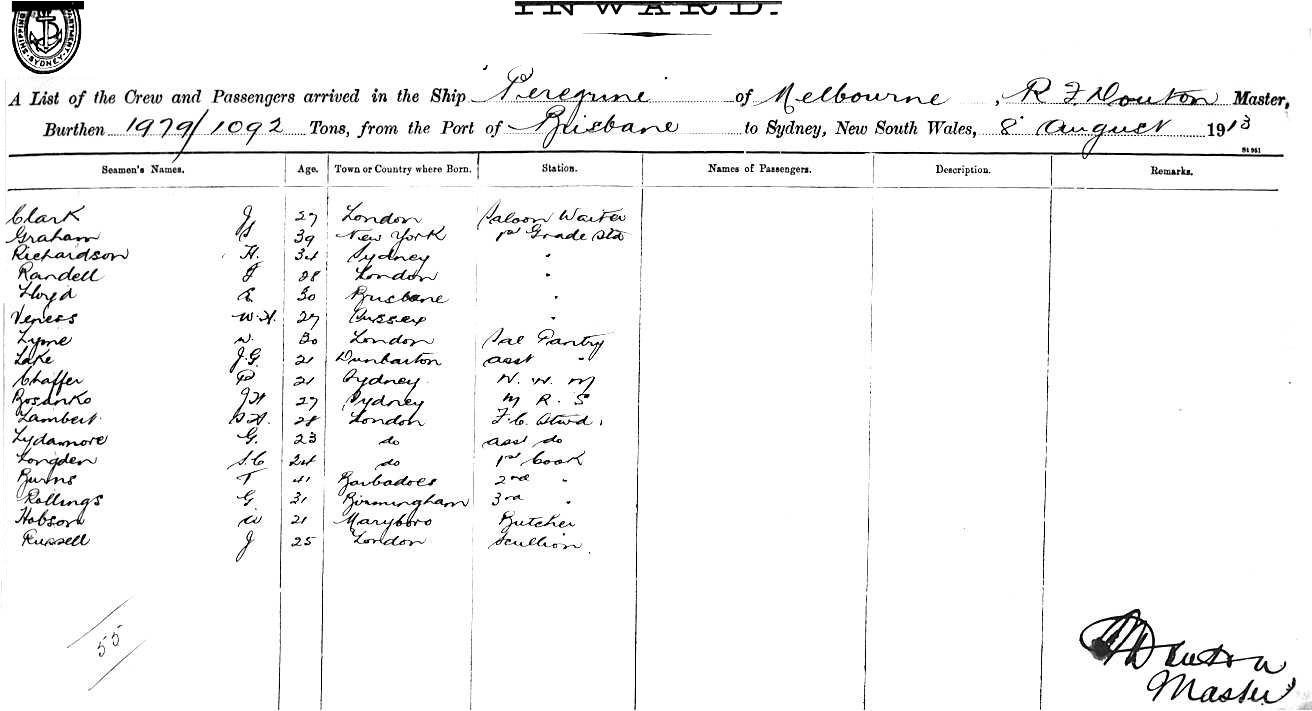 SHIPPING DEPARTMENT. SYDNEY.
INWARD.
A List of the Crew and Passengers arrived in the Ship Peregrine of Melbourne, R F Douton Master,
Burthen 1979/1092 Tons, from the Port of Brisbane to Sydney, New South Wales, 8 August 1913
Seamen's Names. Age. Town or Country where Born. Station. Names of Passengers. Description. Remarks.
Clark J 27 London Saloon Waiter
Graham S 39 New York 1st Grade Std
Richardson H. 34 Sydney "
Randell J 28 London "
Lloyd E. 30 Brisbane "
Veness W.H. 27 Sussex "
Lyme W. 30 London Sal Pantry
Lake J.G. 21 Dunbarton asst "
Chaffer P 21 Sydney N. W. M
Bosanko JH 27 Sydney M R. S
Lambert H. 28 London F.C. Stwd.
Lydamore G. 23 do asst do
Longden S.C 24 do 1st Cook
Burns T 41 Barbadoes 2nd "
Rollings G. 31 Birmingham 3rd "
Hobson W 21 Maryboro Butcher
Russell J 25 London Scullion.
55
Douton
Master